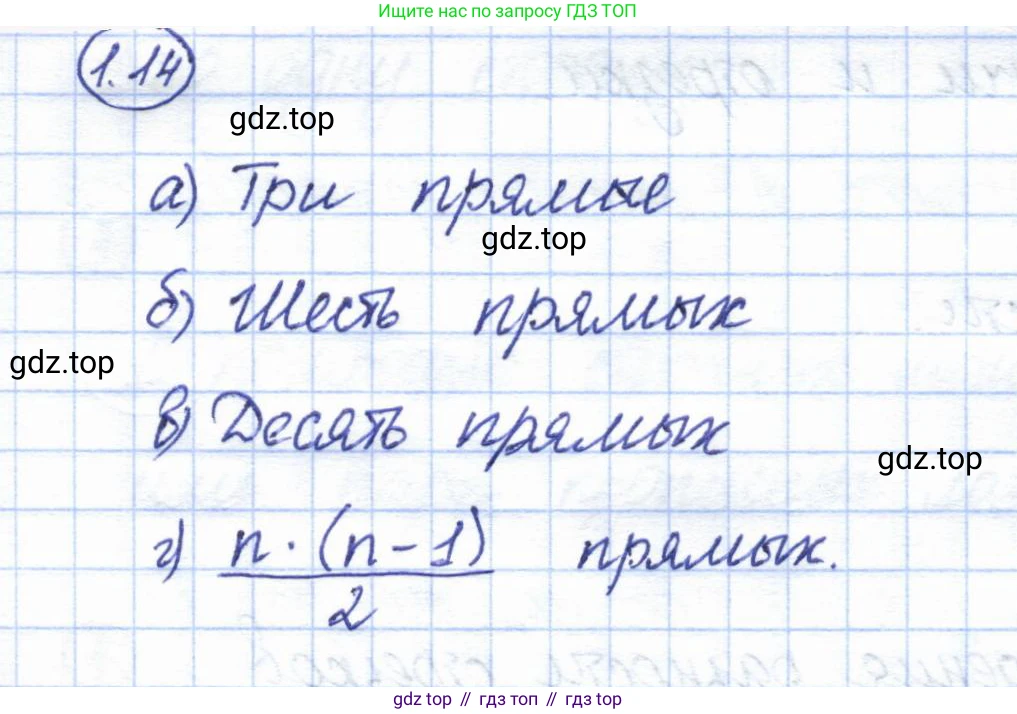 Ищите нас по запросу ГДЗ ТОП
1.14
gdz.top
а) Три прямые
gdz.top
б) Шесть прямых
gdz.top
в) Десять прямых
gdz.top
г) n · (n - 1) / 2 прямых.
gdz top // гдз топ // гдз top